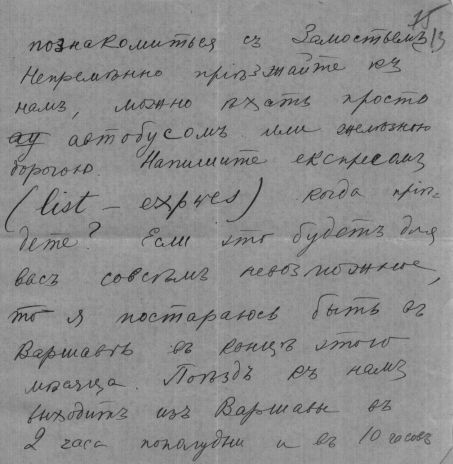 75
познакомиться съ Замостьемъ 13
Непремѣнно пріѣзжайте къ
намъ, можно ѣхать просто
ау автобусомъ или желѣзною
дорогою. Напишите експресом
(list – expres) когда пріѣ-
дете? Если это будетъ для
васъ совсѣмъ невозможное,
то я постараюсь быть въ
Варшавѣ въ концѣ этого
мѣсяца. Поѣздъ къ намъ
выходитъ изъ Варшавы въ
2 часа пополудни и въ 10 часовъ